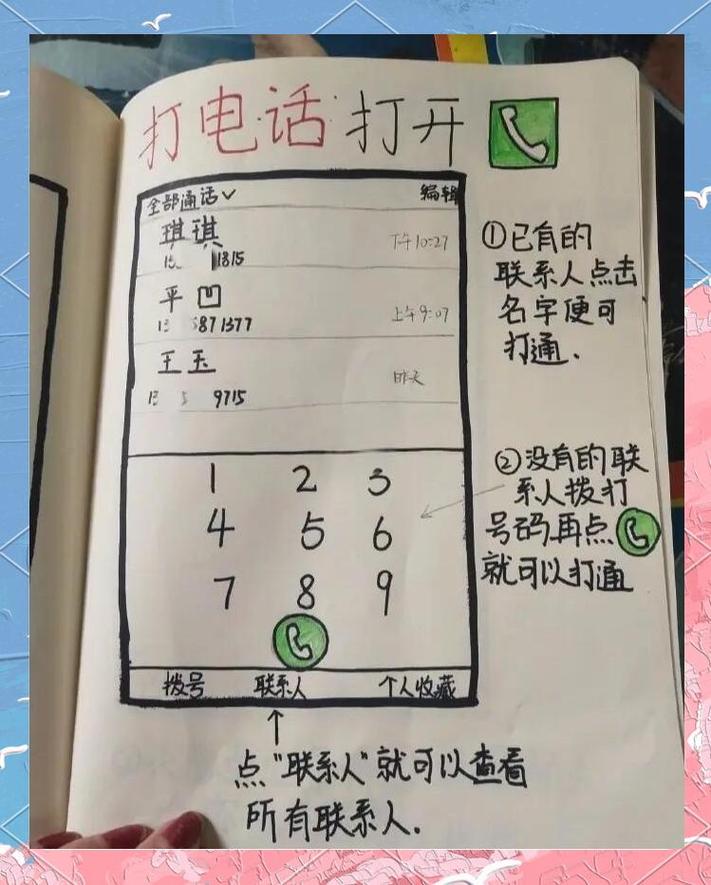 打电话打开
全部通话 编辑
琪琪 下午10:27
1815
平凹 上午9:07
13 6871377
王玉 昨天
13 5 9715
1 2 3
4 5 6
7 8 9
拨号 联系人 个人收藏
①已有的
联系人点击
名字便可
打通.
②没有的联
系人拨打
号码再点
就可以打通
点“联系人”就可以查看
所有联系人.